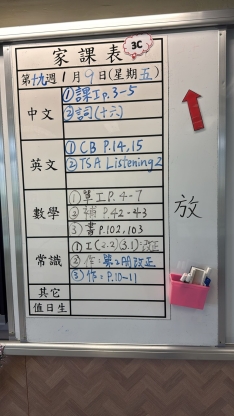 家課表
3C
第十九週 1月9日(星期五)
中文
①課工p.3-5
②詞(十六)
英文
①CB P.14,15
②TSA Listening2
數學
①單工P.4-7
②補P.42-43
③書P.102,103
放
常識
①工(2.2)(3.1)改正
②作:第2冊改正
③作:P.10~11
其它
值日生